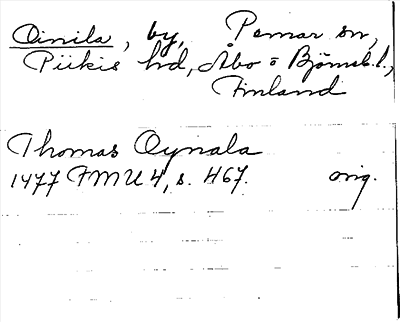 Oinila, by, Pemar sn,
Piikis hd, Åbo o Björneb. l.,
Finland
Thomas Oynala
1477 FMU 4, s. 467. orig.